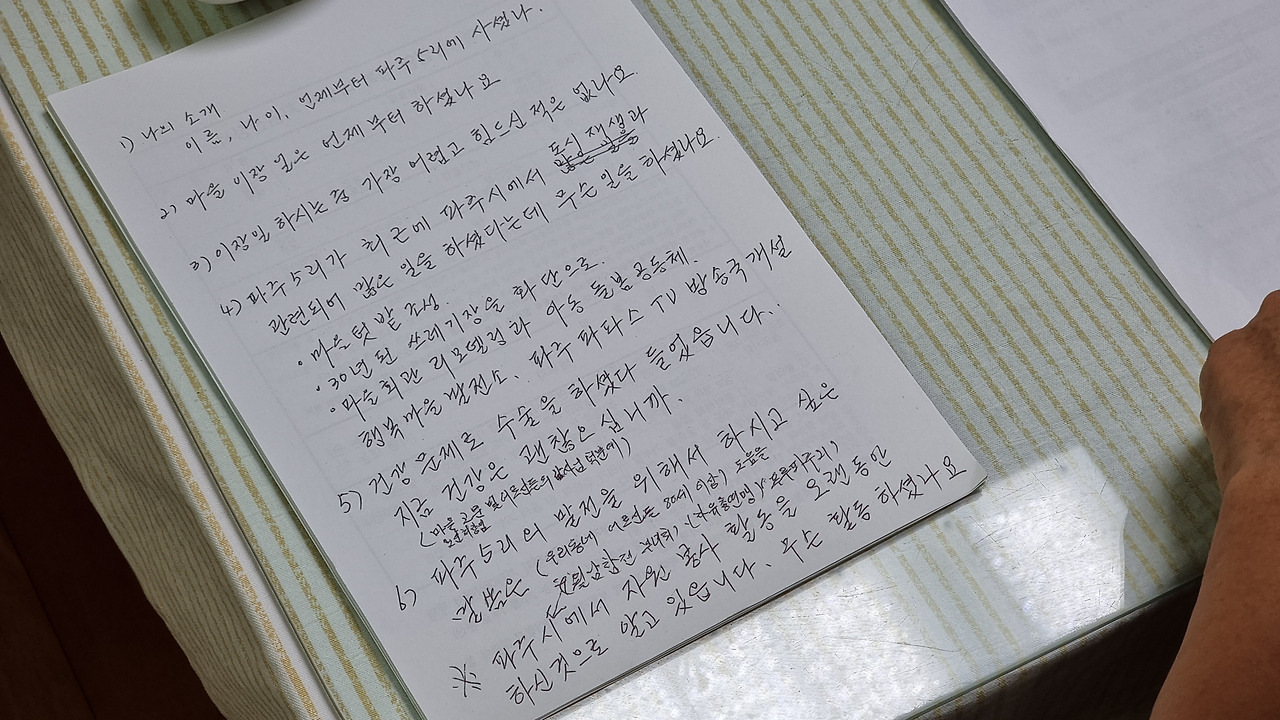 1) 나의 소개
이름, 나이, 언제부터 파주 5리에 사셨나.
2) 마을 이장 일은 언제부터 하셨나요
3) 이장일 하시는 중 가장 어렵고 힘드신 적은 없나요.
4) 파주5리가 최근에 파주시에서 도시 재생과
관련되어 많은 일을 하셨다는데 무슨 일을 하셨나요.
· 마을 텃밭 조성.
· 30년된 쓰레기장을 화단으로.
· 마을회관 리모델링과 아동 돌봄공동체.
행복마을 발전소, 파주 파파스 TV 방송국 개설
5) 건강 문제로 수술을 하셨다 들었습니다.
지금 건강은 괜찮으십니까.
(마을 고문 및 어르신들의 덕분에)
6) 파주 5리의 발전을 위해서 하시고 싶은
말씀은 (우리동네 어르신들 80세 이상) 도움을
※ 파주시에서 자원 봉사 활동을 오랜동안
하신것으로 알고 있습니다. 무슨 활동 하셨나요